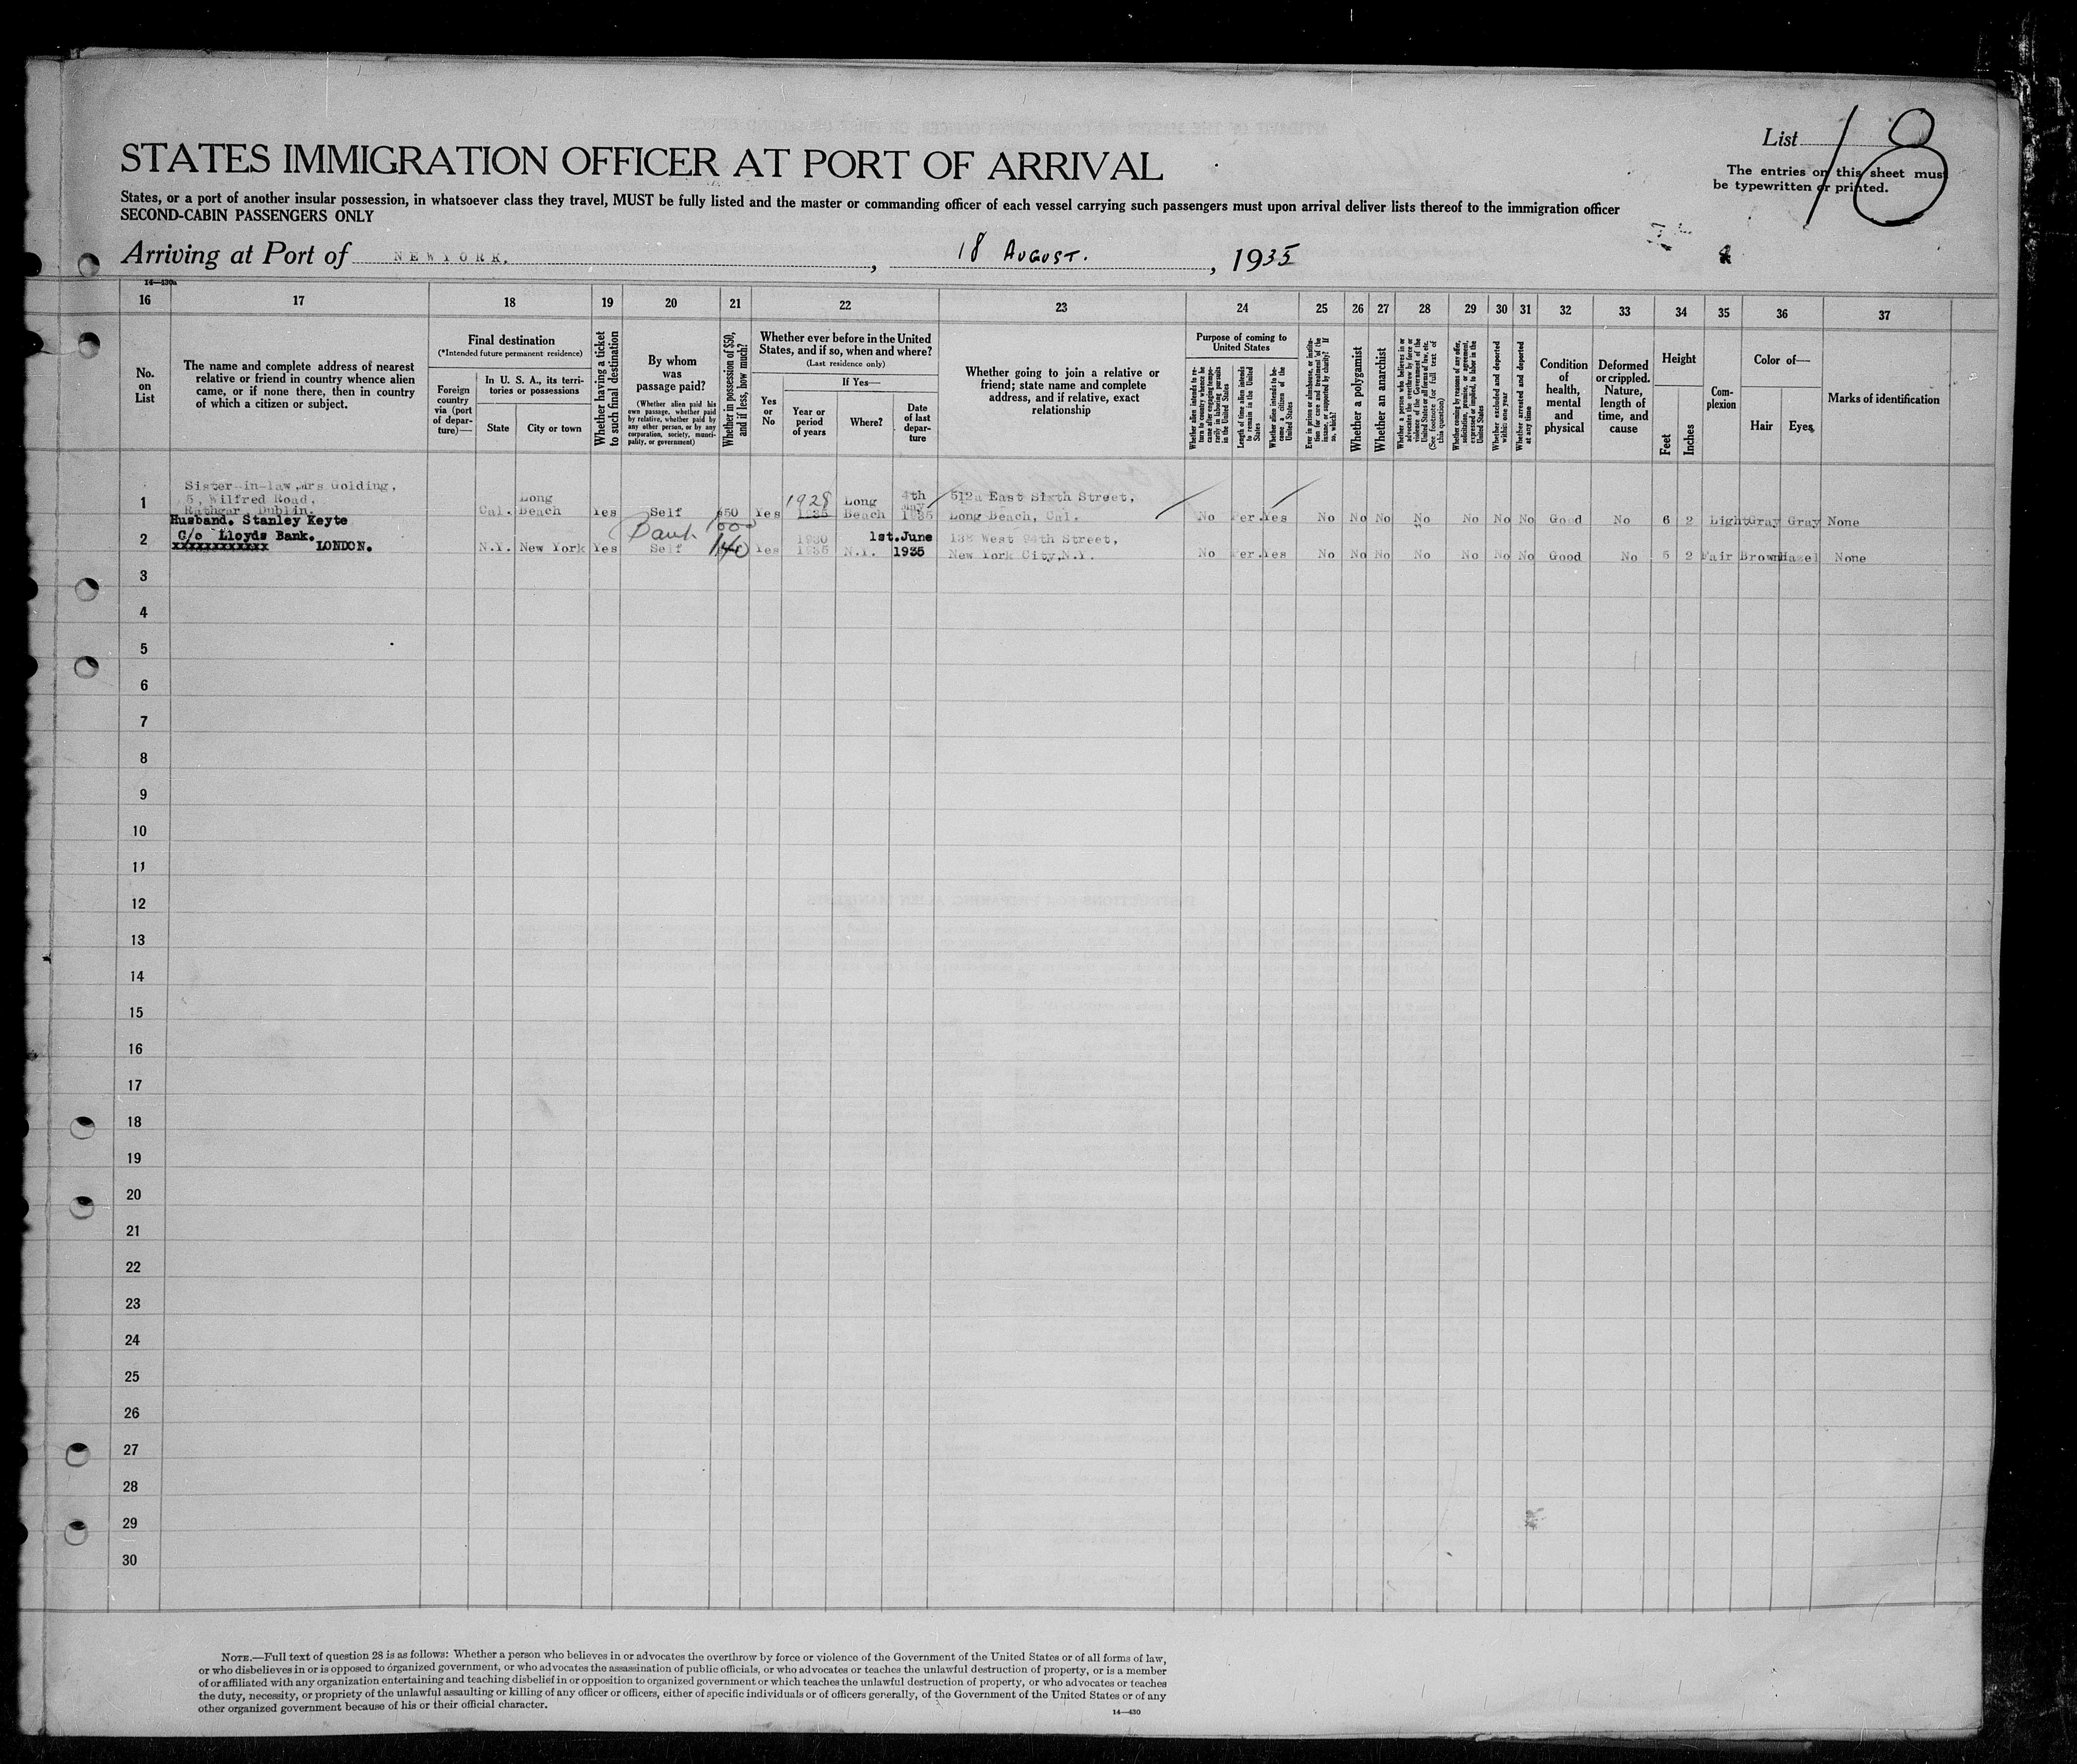 List 18
The entries on this sheet must
be typewritten or printed.
STATES IMMIGRATION OFFICER AT PORT OF ARRIVAL
States, or a port of another insular possession, in whatsoever class they travel, MUST be fully listed and the master or commanding officer of each vessel carrying such passengers must upon arrival deliver lists thereof to the immigration officer
SECOND-CABIN PASSENGERS ONLY
Arriving at Port of NEWYORK. , 18 AUGUST. , 1935
14—430a
16 17 18 19 20 21 22 23 24 25 26 27 28 29 30 31 32 33 34 35 36 37
No.
on
List
The name and complete address of nearest
relative or friend in country whence alien
came, or if none there, then in country
of which a citizen or subject.
Final destination
(*Intended future permanent residence)
Foreign
country
via (port
of depar-
ture)—
In U. S. A., its terri-
tories or possessions
State
City or town
Whether having a ticket
to such final destination
By whom
was
passage paid?
(Whether alien paid his
own passage, whether paid
by relative, whether paid by
any other person, or by any
corporation, society, munici-
pality, or government)
Whether in possession of $50,
and if less, how much?
Whether ever before in the United
States, and if so, when and where?
(Last residence only)
Yes
or
No
If Yes—
Year or
period
of years
Where?
Date
of last
depar-
ture
Whether going to join a relative or
friend; state name and complete
address, and if relative, exact
relationship
Purpose of coming to
United States
Whether alien intends to re-
turn to country whence he
came after engaging tempo-
rarily in laboring pursuits
in the United States
Length of time alien intends
to remain in the United
States
Whether alien intends to be-
come a citizen of the
United States
Ever in prison or almshouse, or institu-
tion for care and treatment of the
insane, or supported by charity? If
so, which?
Whether a polygamist
Whether an anarchist
Whether a person who believes in or
advocates the overthrow by force or
violence of the Government of the
United States or all forms of law, etc.
(See footnote for full text of
this question)
Whether coming by reason of any offer,
solicitation, promise, or agreement,
expressed or implied, to labor in the
United States
Whether excluded and deported
within one year
Whether arrested and deported
at any time
Condition
of
health,
mental
and
physical
Deformed
or crippled.
Nature,
length of
time, and
cause
Height
Feet
Inches
Com-
plexion
Color of—
Hair
Eyes
Marks of identification
Sister-in-law,Mrs Golding,
5, Wilfred Road,
Rathgar, Dublin.
1 Cal. Long Beach Yes Self $50 Yes 1928 1935 Long Beach 4th May 1935 512a East Sixth Street,
Long Beach, Cal. No Per. Yes No No No No No No No Good No 6 2 Light Gray Gray None
Husband. Stanley Keyte
C/o Lloyds Bank.
xxxxxxxxxxxx LONDON.
2 N.Y. New York Yes Self 140 Yes 1930 1935 N.Y. 1st.June 1935 138 West 94th Street,
New York City,N.Y. No Per. Yes No No No No No No No Good No 5 2 Fair Brown Hazel None
3
4
5
6
7
8
9
10
11
12
13
14
15
16
17
18
19
20
21
22
23
24
25
26
27
28
29
30
NOTE.—Full text of question 28 is as follows: Whether a person who believes in or advocates the overthrow by force or violence of the Government of the United States or of all forms of law,
or who disbelieves in or is opposed to organized government, or who advocates the assassination of public officials, or who advocates or teaches the unlawful destruction of property, or is a member
of or affiliated with any organization entertaining and teaching disbelief in or opposition to organized government or which teaches the unlawful destruction of property, or who advocates or teaches
the duty, necessity, or propriety of the unlawful assaulting or killing of any officer or officers, either of specific individuals or of officers generally, of the Government of the United States or of any
other organized government because of his or their official character.
14—430